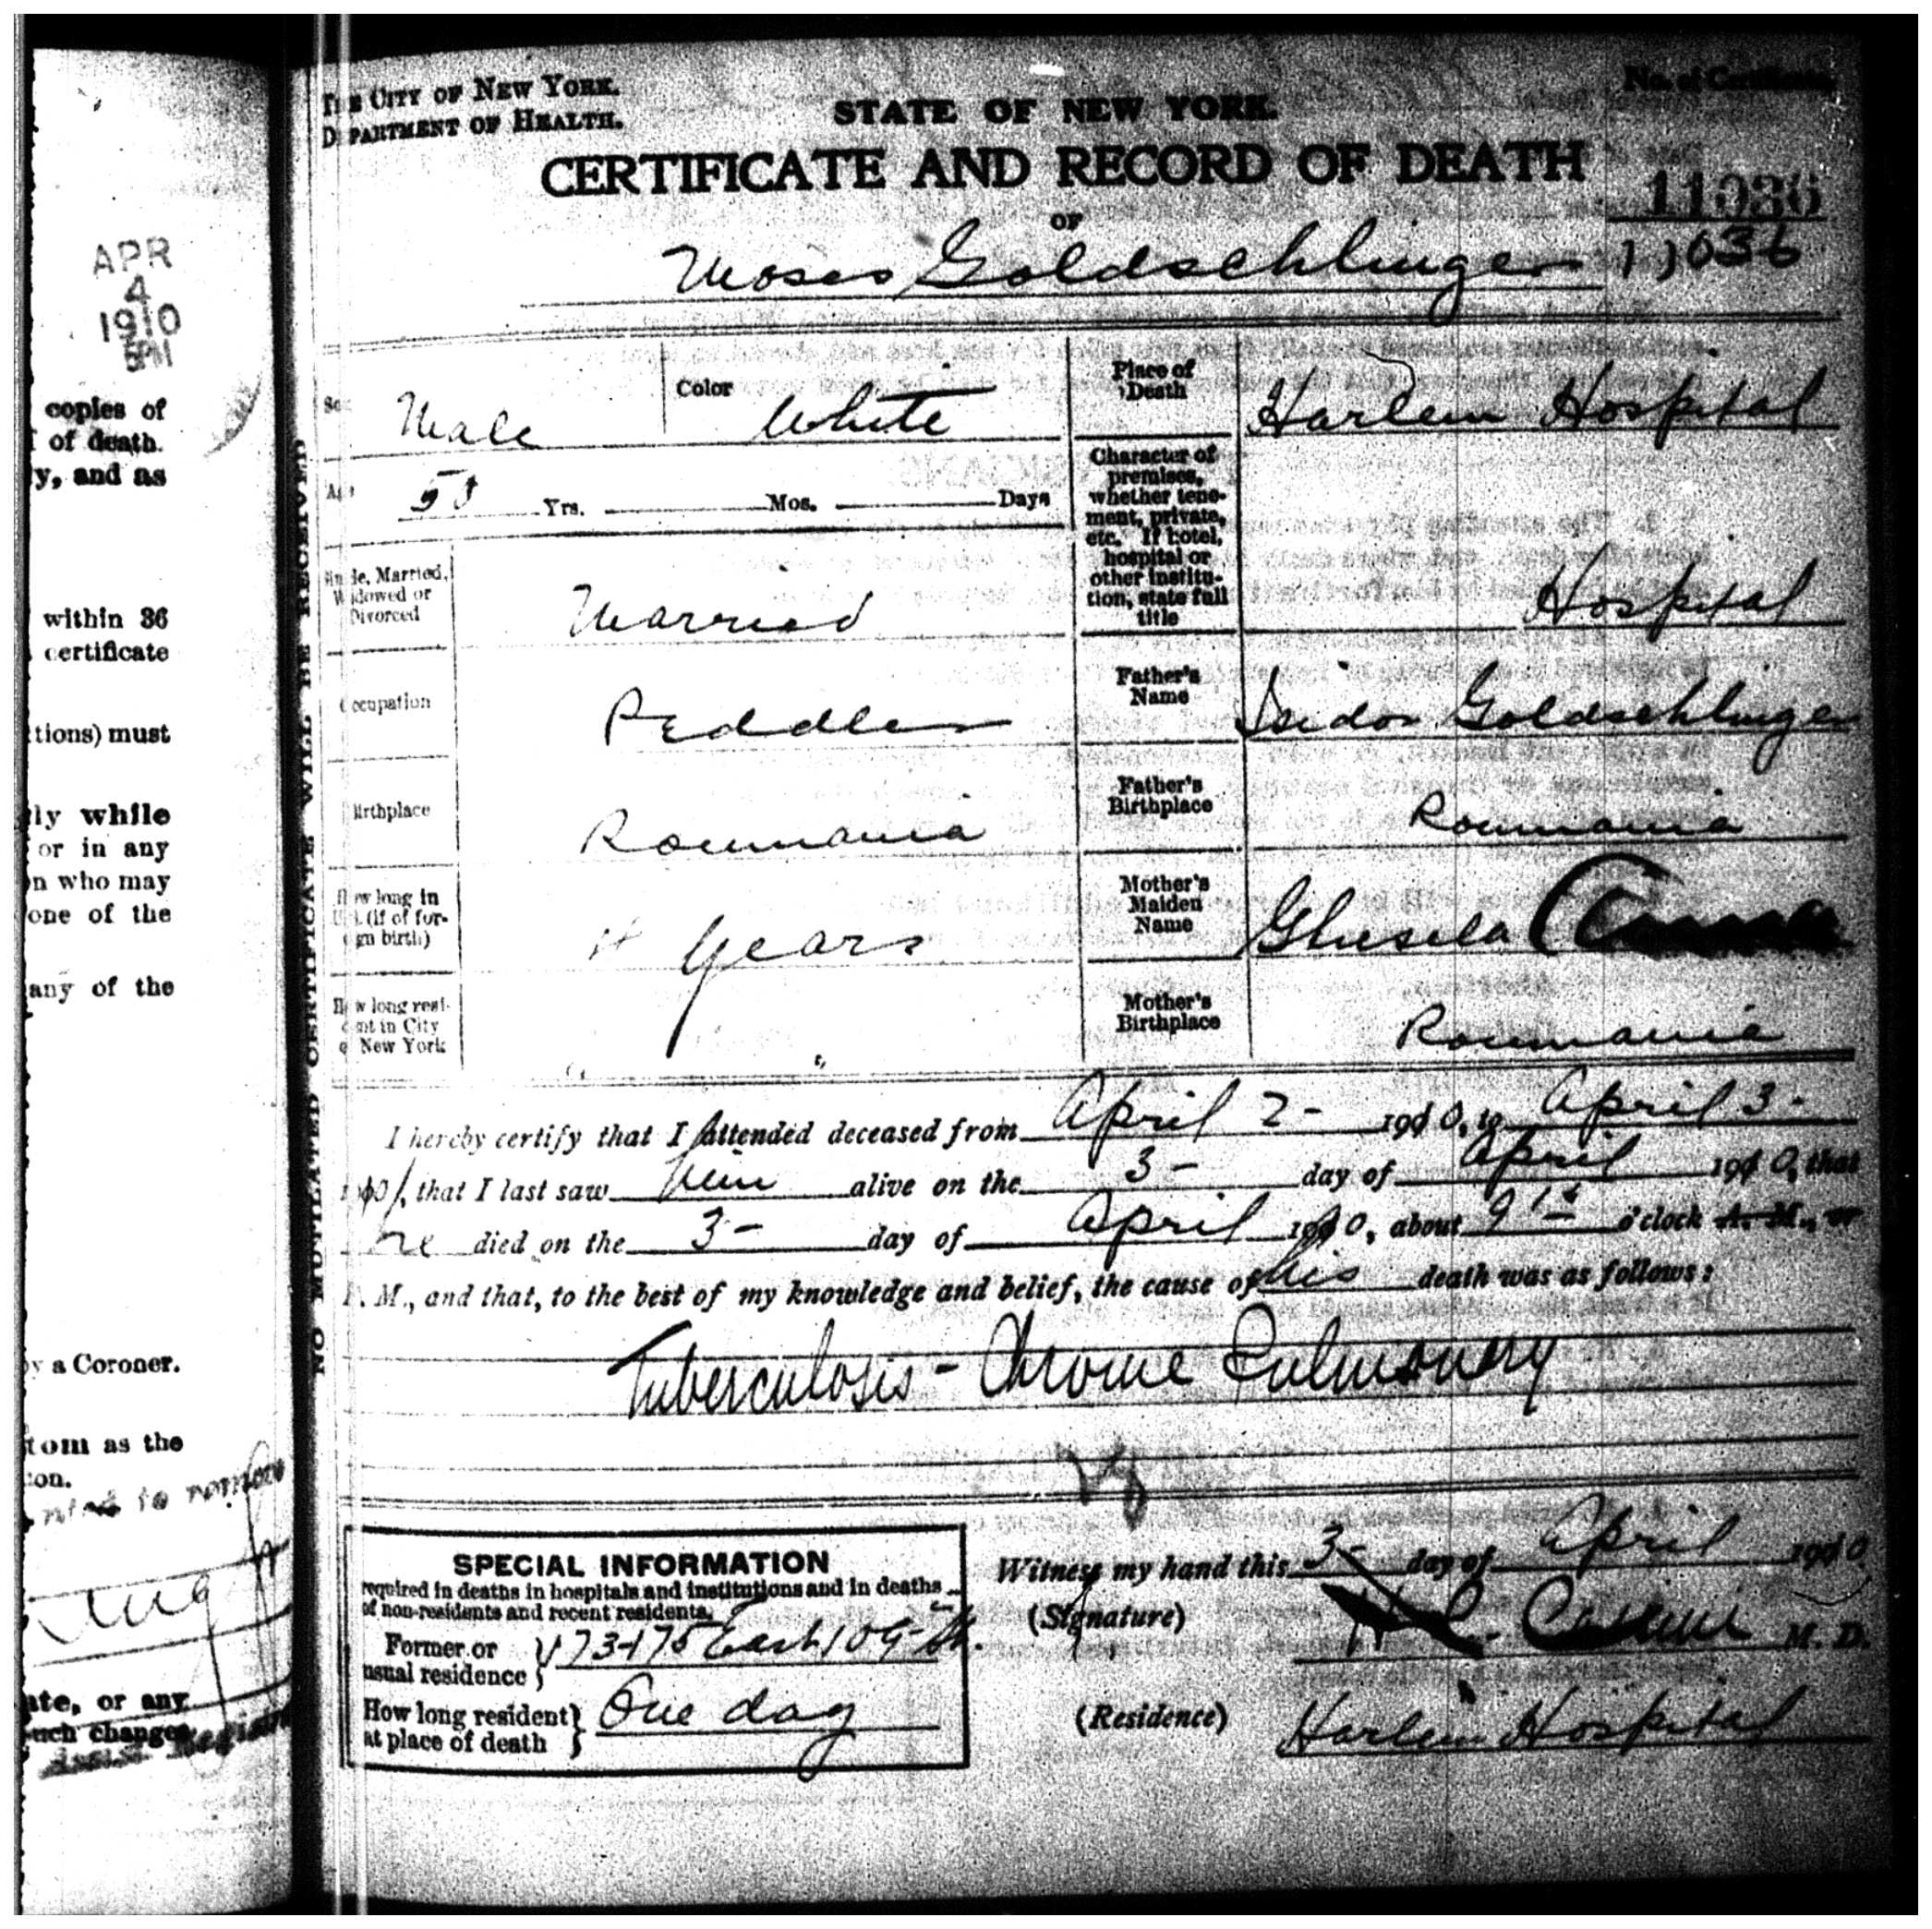 APR
4
1910
PM
copies of
of death.
y, and as
within 36
certificate
tions) must
ly while
or in any
n who may
one of the
any of the
y a Coroner.
tom as the
ion.
to
ate, or any
such changes
NO MUTILATED CERTIFICATE WILL BE RECEIVED
THE CITY OF NEW YORK.
DEPARTMENT OF HEALTH.
STATE OF NEW YORK.
No. of Certificate,
CERTIFICATE AND RECORD OF DEATH
11036
OF
Moses Goldschlinger 11036
Sex Male Color White
Place of Death Harlem Hospital
Age Yrs. Mos. Days
Character of premises, whether tenement, private, etc. If hotel, hospital or other institution, state full title
Hospital
Single, Married, Widowed or Divorced Married
Occupation Peddler
Father's Name Isidor Goldschlinger
Birthplace Roumania
Father's Birthplace Roumania
How long in U.S. (if of foreign birth) Years
Mother's Maiden Name Ghisela (Anna
How long resident in City of New York " "
Mother's Birthplace Roumania
I hereby certify that I attended deceased from April 2- 1910, to April 3-
1910, that I last saw him alive on the 3- day of April 1910, that
he died on the 3- day of April 1910, about o'clock A. M., or
P. M., and that, to the best of my knowledge and belief, the cause of his death was as follows:
Tuberculosis - Chronic Pulmonary
SPECIAL INFORMATION
required in deaths in hospitals and institutions and in deaths
of non-residents and recent residents.
Former or usual residence } 173-175 East 109 St.
How long resident at place of death } One day
Witness my hand this 3- day of April 1910
(Signature) M. D.
(Residence) Harlem Hospital